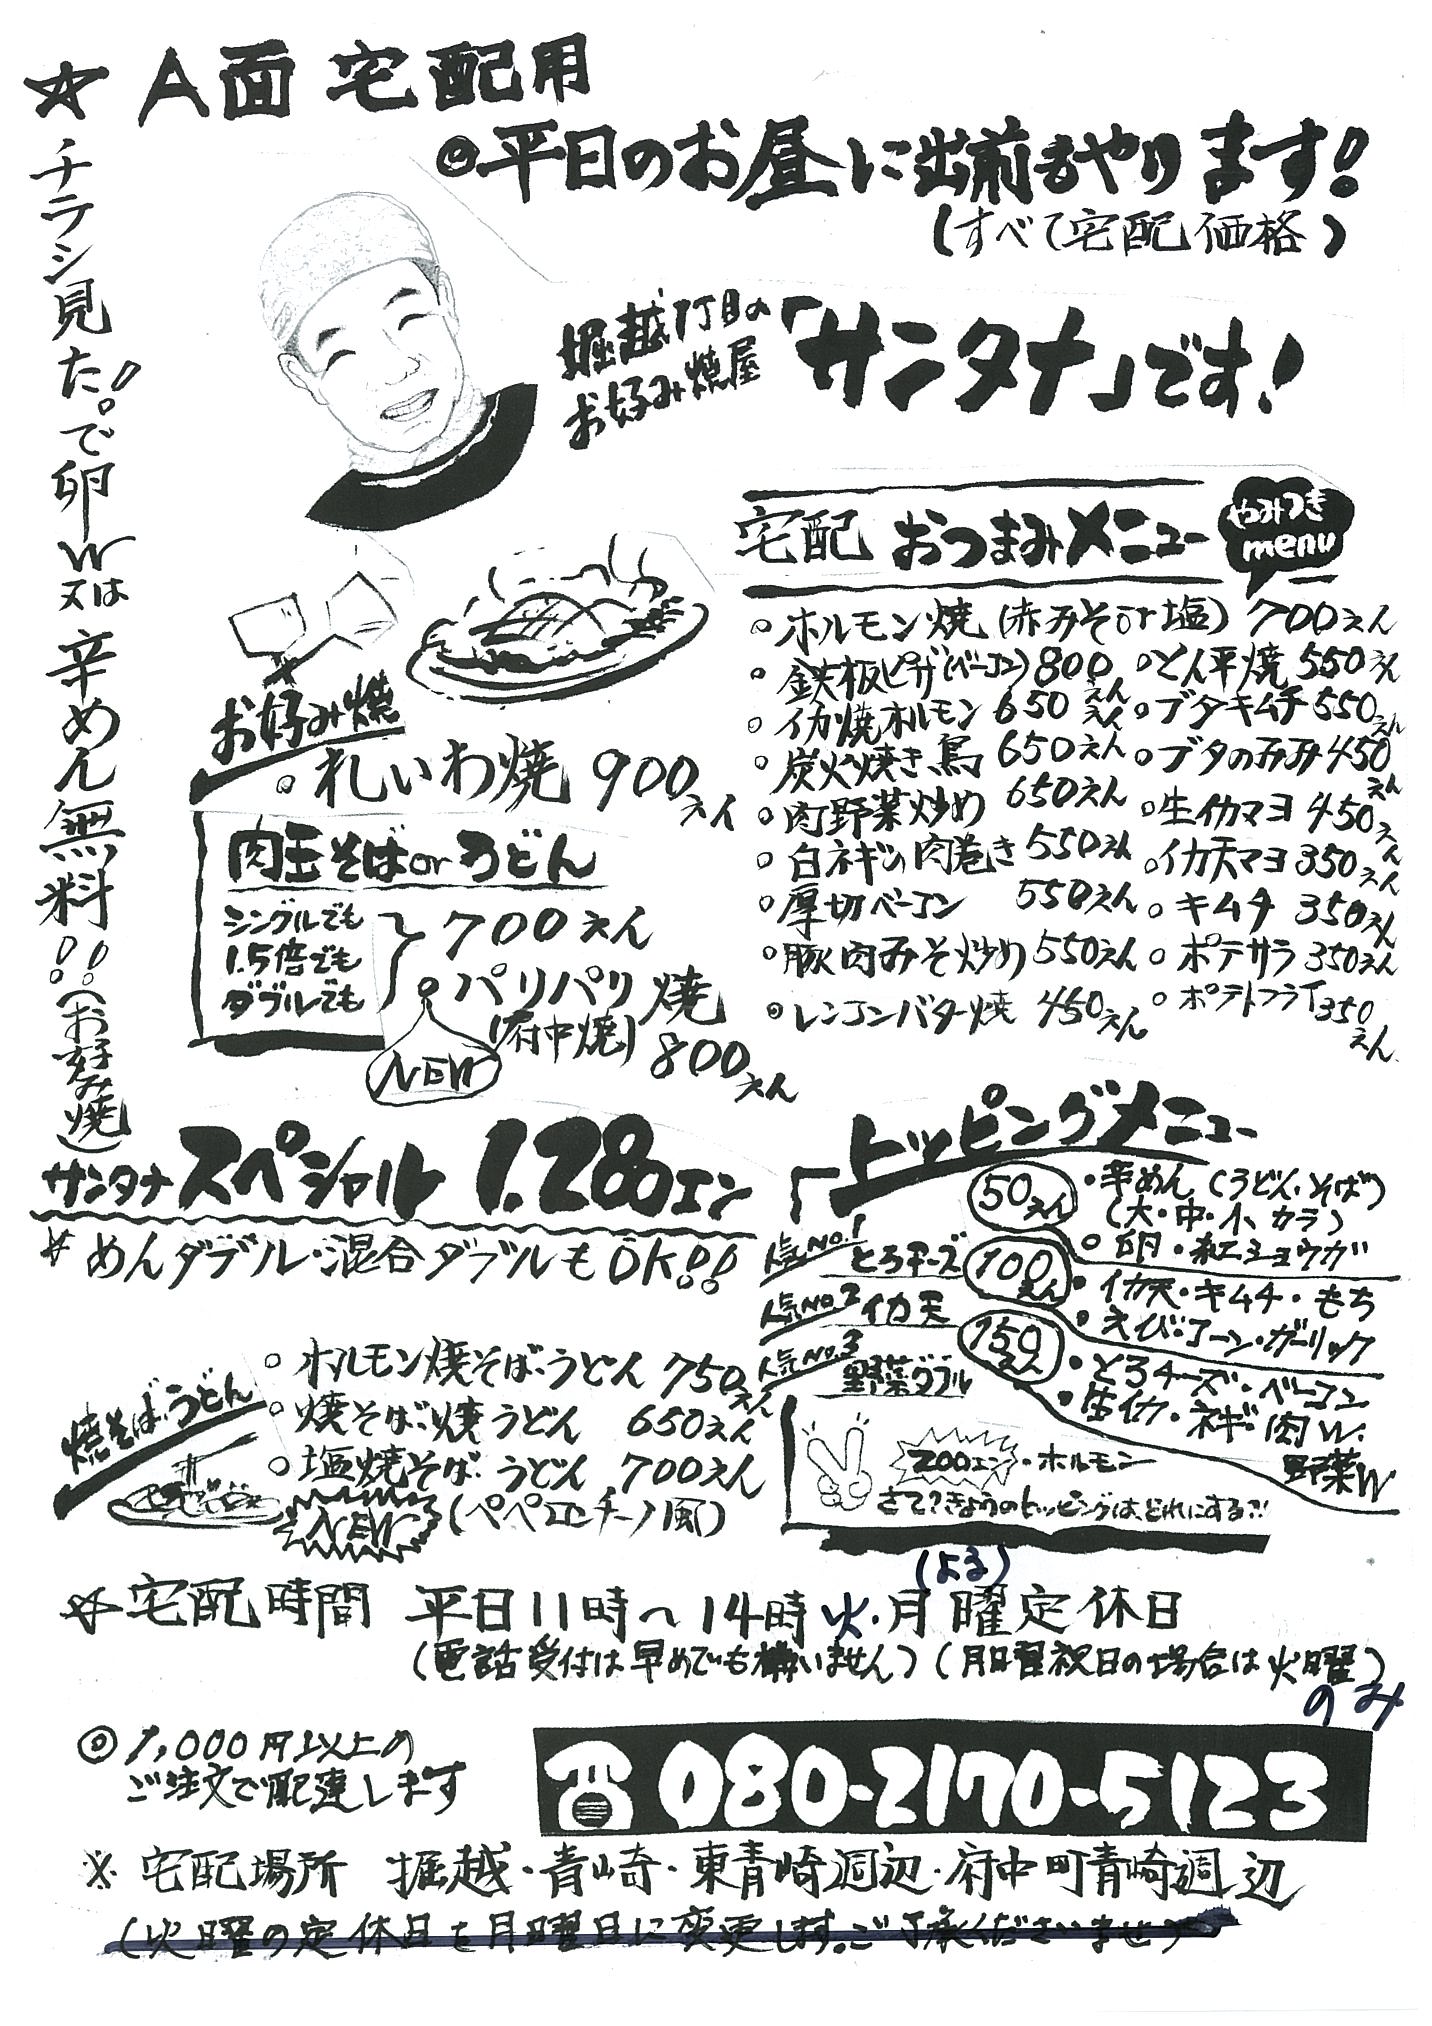 ☆ A面 宅配用
◎平日のお昼に出前もやります!
(すべて宅配価格)
チラシ見た!!で卵W又は辛めん無料!!(お好み焼)
堀越1丁目の
お好み焼屋
「サンタナ」です!
宅配 おつまみメニュー
やみつき
menu
○ホルモン焼(赤みそor塩) 700えん
○鉄板ピザ(ベーコン) 800えん
○イカ焼ホルモン 650えん
○炭火焼き鳥 650えん
○肉野菜炒め 650えん
○白ネギの肉巻き 550えん
○厚切ベーコン 550えん
○豚肉みそ炒め 550えん
○レンコンバター焼 450えん
○とん平焼 550えん
○ブタキムチ 550えん
○ブタのみみ 450えん
○生イカマヨ 450えん
○イカ天マヨ 350えん
○キムチ 350えん
○ポテサラ 350えん
○ポテトフライ 350えん
お好み焼
○れいわ焼 900えん
肉玉そばorうどん
シングルでも
1.5倍でも
ダブルでも
700えん
○パリパリ焼
(府中焼) 800えん
NEW
サンタナスペシャル 1.280エン
☆めんダブル・混合ダブルもOK!!
トッピングメニュー
人気No.1 とろチーズ
人気No.2 イカ天
人気No.3 野菜ダブル
50えん
・辛めん(うどん・そば)
(大・中・小 カラ)
・卵・紅ショウガ
100えん
・イカ天・キムチ・もち
・えび・コーン・ガーリック
150えん
・とろチーズ・ベーコン
・生イカ・ネギ・肉W・
野菜W
200エン・ホルモン
さて?きょうのトッピングは、どれにする?!
焼そば・うどん
○ホルモン焼そば・うどん 750えん
○焼そば・焼うどん 650えん
○塩焼そば・うどん 700えん
NEW
(ペペロンチーノ風)
☆宅配時間 平日11時〜14時 火・月(よる)曜定休日
(電話受付は早めでも構いません)(月曜祝日の場合は火曜)
のみ
◎1,000円以上の
ご注文で配達します
☎080-2170-5123
※宅配場所 堀越・青崎・東青崎週辺・府中町青崎週辺
(火曜の定休日を月曜日に変更します。ご了承くださいませ)